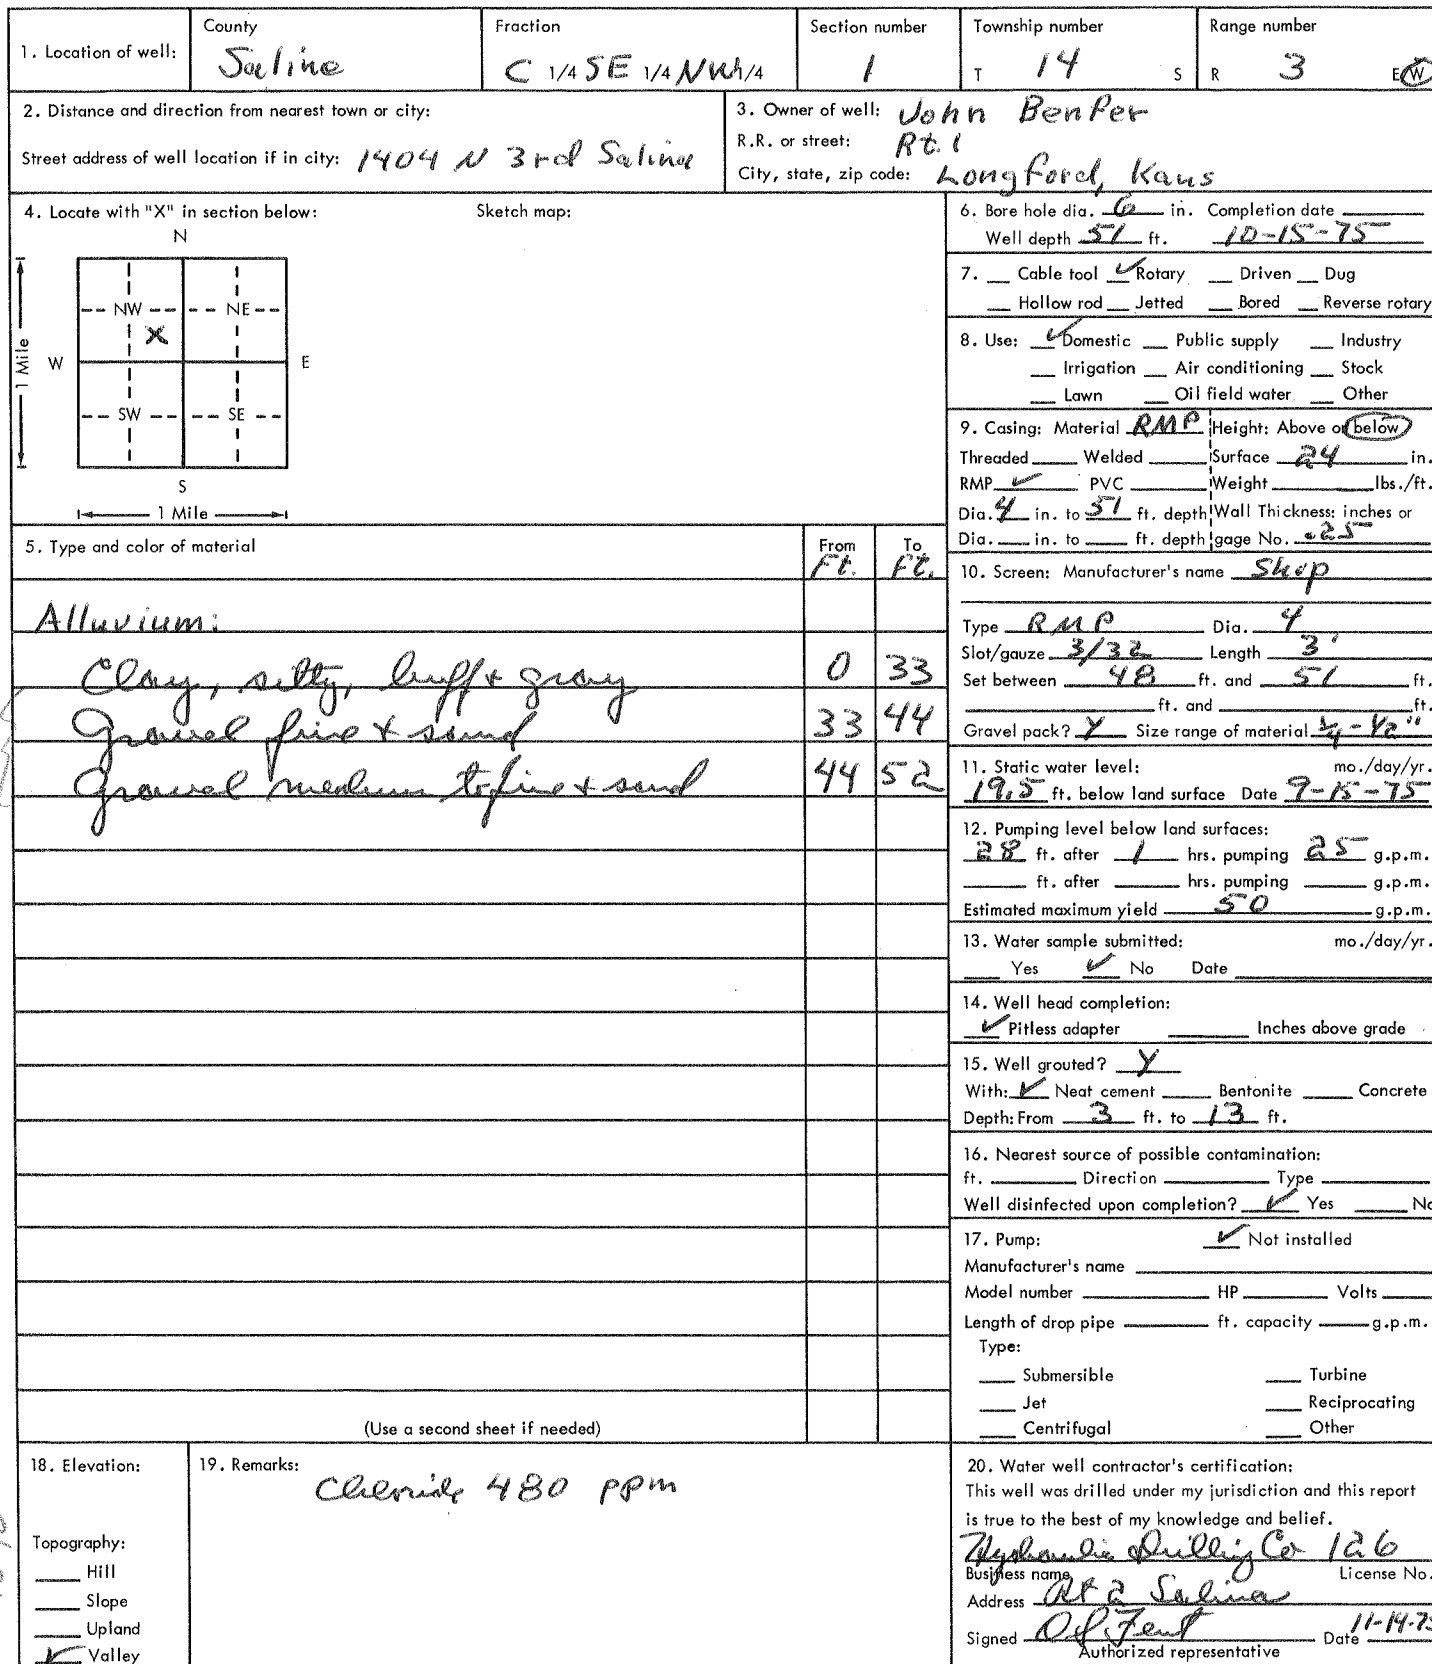 1. Location of well: County Saline Fraction C 1/4 SE 1/4 NW 1/4 Section number 1 Township number T 14 S Range number R 3 E/W
2. Distance and direction from nearest town or city:
Street address of well location if in city: 1404 N 3rd Salina
3. Owner of well: John Benfer
R.R. or street: Rt. 1
City, state, zip code: Longford, Kans
4. Locate with "X" in section below: Sketch map:
N
NW NE
X
W E
1 Mile
SW SE
S
1 Mile
5. Type and color of material From Ft. To Ft.
Alluvium:
Clay, silty, buff + gray 0 33
Gravel fine + sand 33 44
Gravel medium to fine + sand 44 52
(Use a second sheet if needed)
6. Bore hole dia. 6 in. Completion date
Well depth 51 ft. 10-15-75
7. Cable tool ✓ Rotary Driven Dug
Hollow rod Jetted Bored Reverse rotary
8. Use: ✓ Domestic Public supply Industry
Irrigation Air conditioning Stock
Lawn Oil field water Other
9. Casing: Material RMP Height: Above or below
Threaded Welded Surface 24 in.
RMP ✓ PVC Weight lbs./ft.
Dia. 4 in. to 51 ft. depth Wall Thickness: inches or
Dia. in. to ft. depth gage No. .25
10. Screen: Manufacturer's name Shop
Type RMP Dia. 4
Slot/gauze 3/32 Length 3'
Set between 48 ft. and 51 ft.
ft. and ft.
Gravel pack? Y Size range of material 1/4 - 1/2"
11. Static water level: mo./day/yr.
19.5 ft. below land surface Date 9-15-75
12. Pumping level below land surfaces:
28 ft. after 1 hrs. pumping 25 g.p.m.
ft. after hrs. pumping g.p.m.
Estimated maximum yield 50 g.p.m.
13. Water sample submitted: mo./day/yr.
Yes ✓ No Date
14. Well head completion:
✓ Pitless adapter Inches above grade
15. Well grouted? Y
With: ✓ Neat cement Bentonite Concrete
Depth: From 3 ft. to 13 ft.
16. Nearest source of possible contamination:
ft. Direction Type
Well disinfected upon completion? ✓ Yes No
17. Pump: ✓ Not installed
Manufacturer's name
Model number HP Volts
Length of drop pipe ft. capacity g.p.m.
Type:
Submersible Turbine
Jet Reciprocating
Centrifugal Other
18. Elevation:
Topography:
Hill
Slope
Upland
✓ Valley
19. Remarks:
Chloride 480 ppm
20. Water well contractor's certification:
This well was drilled under my jurisdiction and this report
is true to the best of my knowledge and belief.
Hydraulic Drilling Co 126
Business name License No.
Address Rt 2 Salina
Signed O S Fent Date 11-14-75
Authorized representative